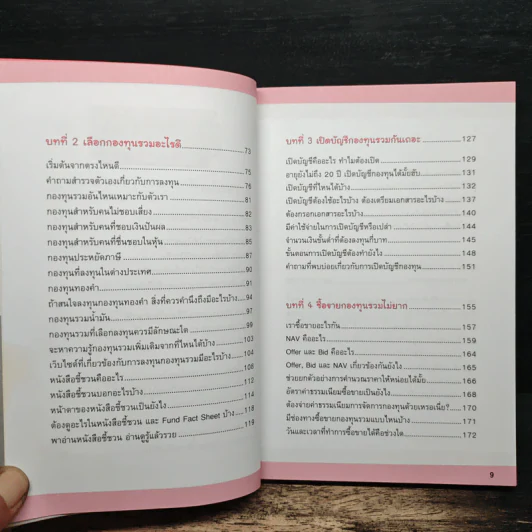 บทที่ 2 เลือกกองทุนรวมอะไรดี 73
เริ่มต้นจากตรงไหนดี 75
คำถามสำรวจตัวเองเกี่ยวกับการลงทุน 76
กองทุนรวมอันไหนเหมาะกับตัวเรา 81
กองทุนสำหรับคนไม่ชอบเสี่ยง 82
กองทุนสำหรับคนที่ชอบเงินปันผล 83
กองทุนสำหรับคนที่ชื่นชอบในหุ้น 85
กองทุนประหยัดภาษี 87
กองทุนที่ลงทุนในต่างประเทศ 90
กองทุนทองคำ 94
ถ้าสนใจลงทุนกองทุนทองคำ สิ่งที่ควรคำนึงถึงมีอะไรบ้าง 96
กองทุนรวมน้ำมัน 97
กองทุนรวมที่เลือกลงทุนควรมีลักษณะใด 99
จะหาความรู้กองทุนรวมเพิ่มเติมจากที่ไหนได้บ้าง 103
เว็บไซต์ที่เกี่ยวข้องกับการลงทุนกองทุนรวมมีอะไรบ้าง 104
หนังสือชี้ชวนคืออะไร 108
หนังสือชี้ชวนบอกอะไรบ้าง 112
หน้าตาของหนังสือชี้ชวนเป็นยังไง 114
ต้องดูอะไรในหนังสือชี้ชวน และ Fund Fact Sheet บ้าง 118
พาอ่านหนังสือชี้ชวน อ่านดูรู้แล้วรวย 119
บทที่ 3 เปิดบัญชีกองทุนรวมกันเถอะ 127
เปิดบัญชีคืออะไร ทำไมต้องเปิด 129
อายุยังไม่ถึง 20 ปี เปิดบัญชีกองทุนได้มั้ยฮับ 131
เปิดบัญชีที่ไหนได้บ้าง 132
เปิดบัญชีต้องใช้อะไรบ้าง ต้องเตรียมเอกสารอะไรบ้าง 137
ต้องกรอกเอกสารอะไรบ้าง 140
มีค่าใช้จ่ายในการเปิดบัญชีหรือเปล่า 144
จำนวนเงินขั้นต่ำที่ต้องลงทุนกี่บาท 145
ขั้นตอนการเปิดบัญชีต้องทำยังไง 148
คำถามที่พบบ่อยเกี่ยวกับการเปิดบัญชีกองทุน 151
บทที่ 4 ซื้อขายกองทุนรวมไม่ยาก 155
เราซื้อขายอะไรกัน 157
NAV คืออะไร 159
Offer และ Bid คืออะไร 164
Offer, Bid และ NAV เกี่ยวข้องกันยังไง 165
ช่วยยกตัวอย่างการคำนวณราคาให้หน่อยได้มั้ย 166
อัตราค่าธรรมเนียมซื้อขายเป็นยังไง 168
ต้องจ่ายค่าธรรมเนียมการจัดการกองทุนด้วยเหรอเนี่ย? 170
มีช่องทางซื้อขายกองทุนรวมแบบไหนบ้าง 171
วันและเวลาที่ทำการซื้อขายได้คือช่วงใด 172
9